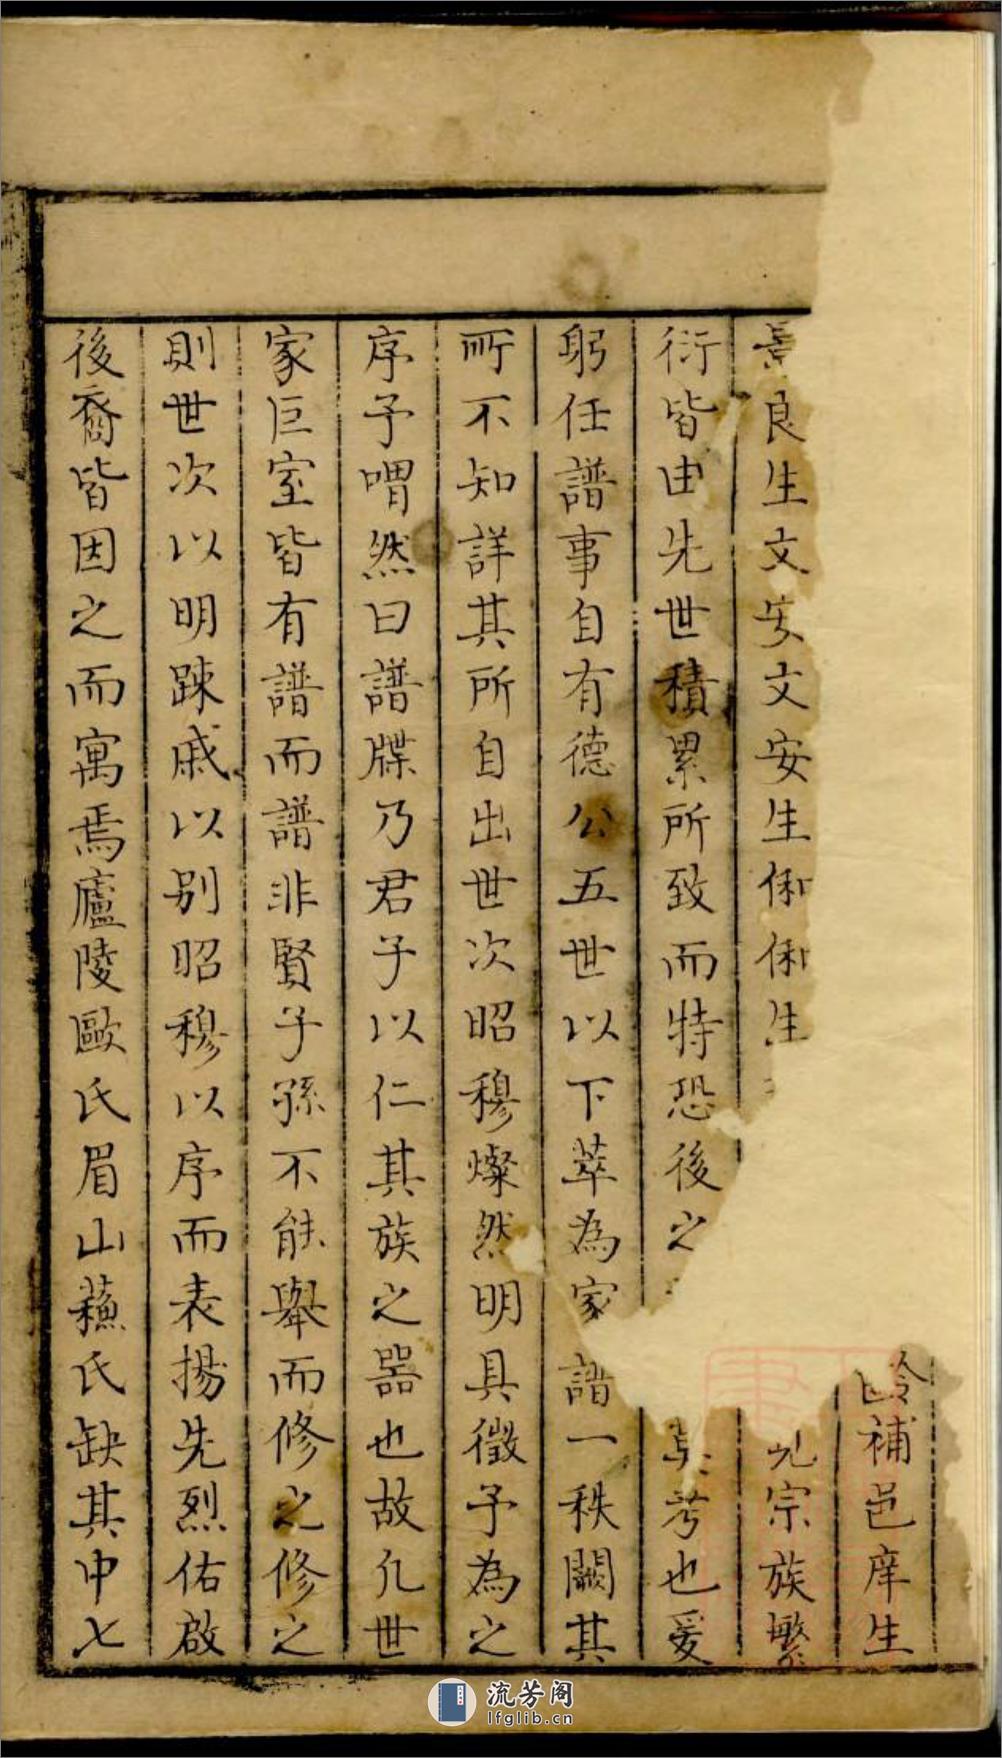 齡補邑庠生
良生文安文安生俐俐生
宗族繁
衍皆由先世積累所致而特恐後之
考也爰
躬任譜事自有德公五世以下萃為家譜一秩闕其
所不知詳其所自出世次昭穆燦然明具徵予為之
序予喟然曰譜牒乃君子以仁其族之器也故凢世
家巨室皆有譜而譜非賢子孫不能舉而修之修之
則世次以明踈戚以别昭穆以序而表揚先烈佑啟
後裔皆因之而寓焉廬陵歐氏眉山蘓氏缺其中七
流芳阁
lfglib.cn